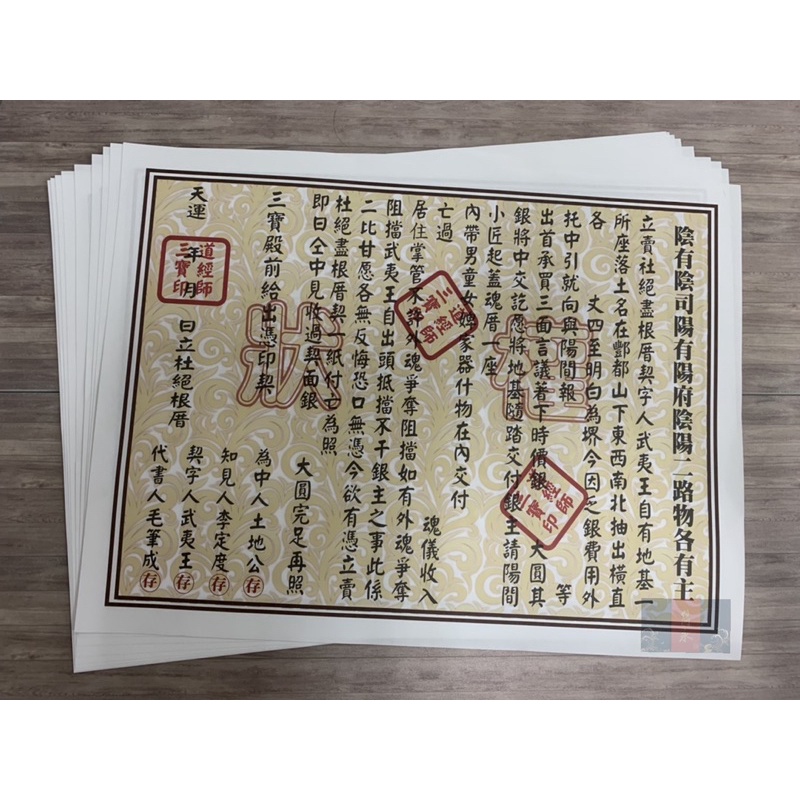 陰有陰司陽有陽府陰陽二路物各有主
立賣杜絕盡根厝契字人武夷王自有地基一
所座落土名在酆都山下東西南北抽出橫直
各　丈四至明白為堺今因乏銀費用外
托中引就向與陽間報　等
出首承買三面言議著下時價銀　大圓其
銀將中交訖忽將地基隨踏交付銀主請陽間
小匠起蓋魂厝一座
內帶男童女婢家器什物在內交付
亡過　魂儀收入
居住掌管不許外魂爭奪阻擋如有外魂爭奪
阻擋武夷王自出頭抵擋不干銀主之事此係
二比甘愿各無反悔恐口無憑今欲有憑立賣
杜絕盡根厝契一紙付亡為照
即日仝中見收過契面銀　大圓完足再照
三寶殿前給出憑印契
為中人土地公存
知見人李定度存
契字人武夷王存
代書人毛筆成存
天運　年　月　日立杜絕根厝
道經師三寶印
道經師三寶
道經師三寶印
權狀